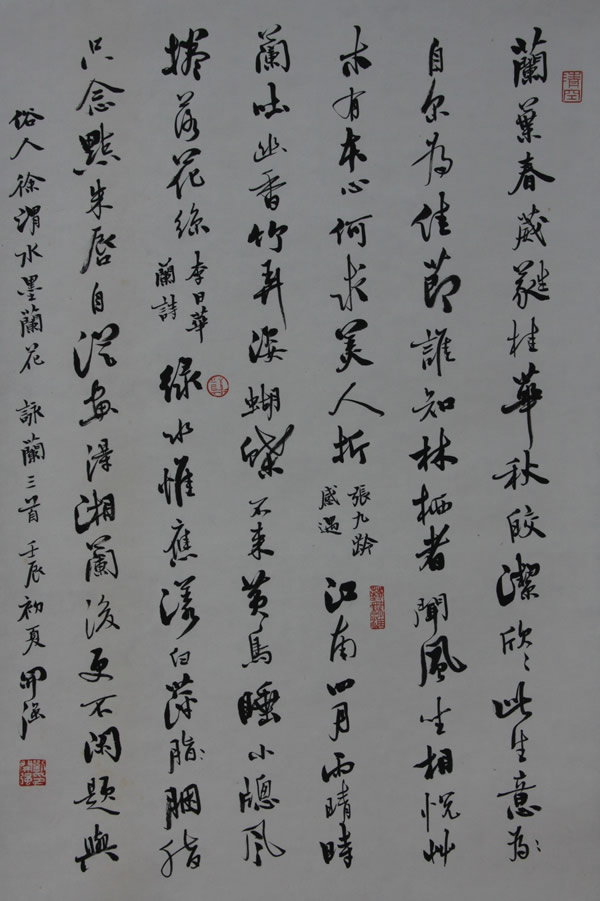 蘭葉春葳蕤桂華秋皎潔欣〻此生意為〻
自尔為佳節誰知林栖者聞風坐相悅艸
木有本心何求美人折 張九齡感遇 江南四月雨晴時
蘭吐幽香竹弄姿蝴蝶不來黃鳥睡小牕風
捲落花絲 李日華蘭詩 綠水惟應漾白蘋脂〻胭脂
只念點朱唇自從畫得湘蘭後更不閑題與
俗人徐渭水墨蘭花 詠蘭三首 壬辰初夏